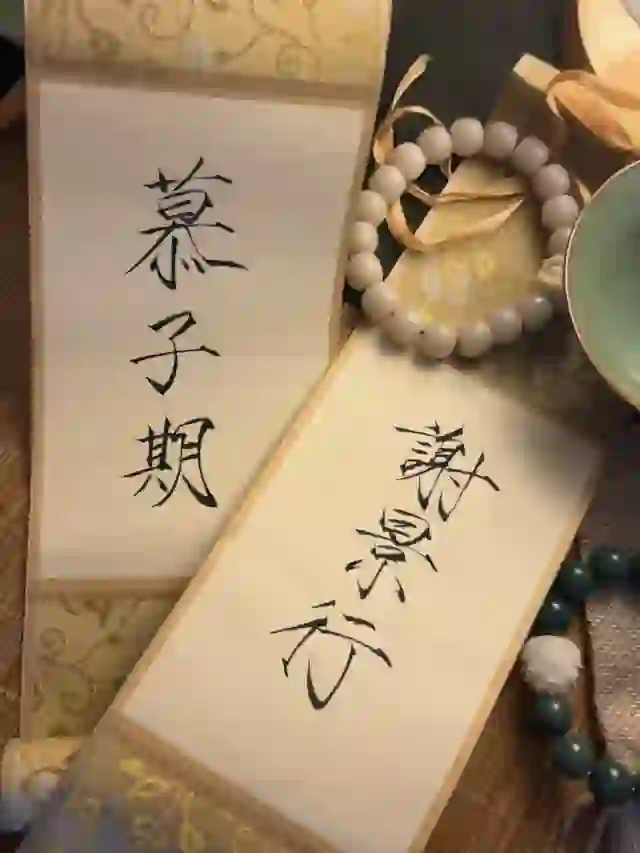 慕子期
謝景行